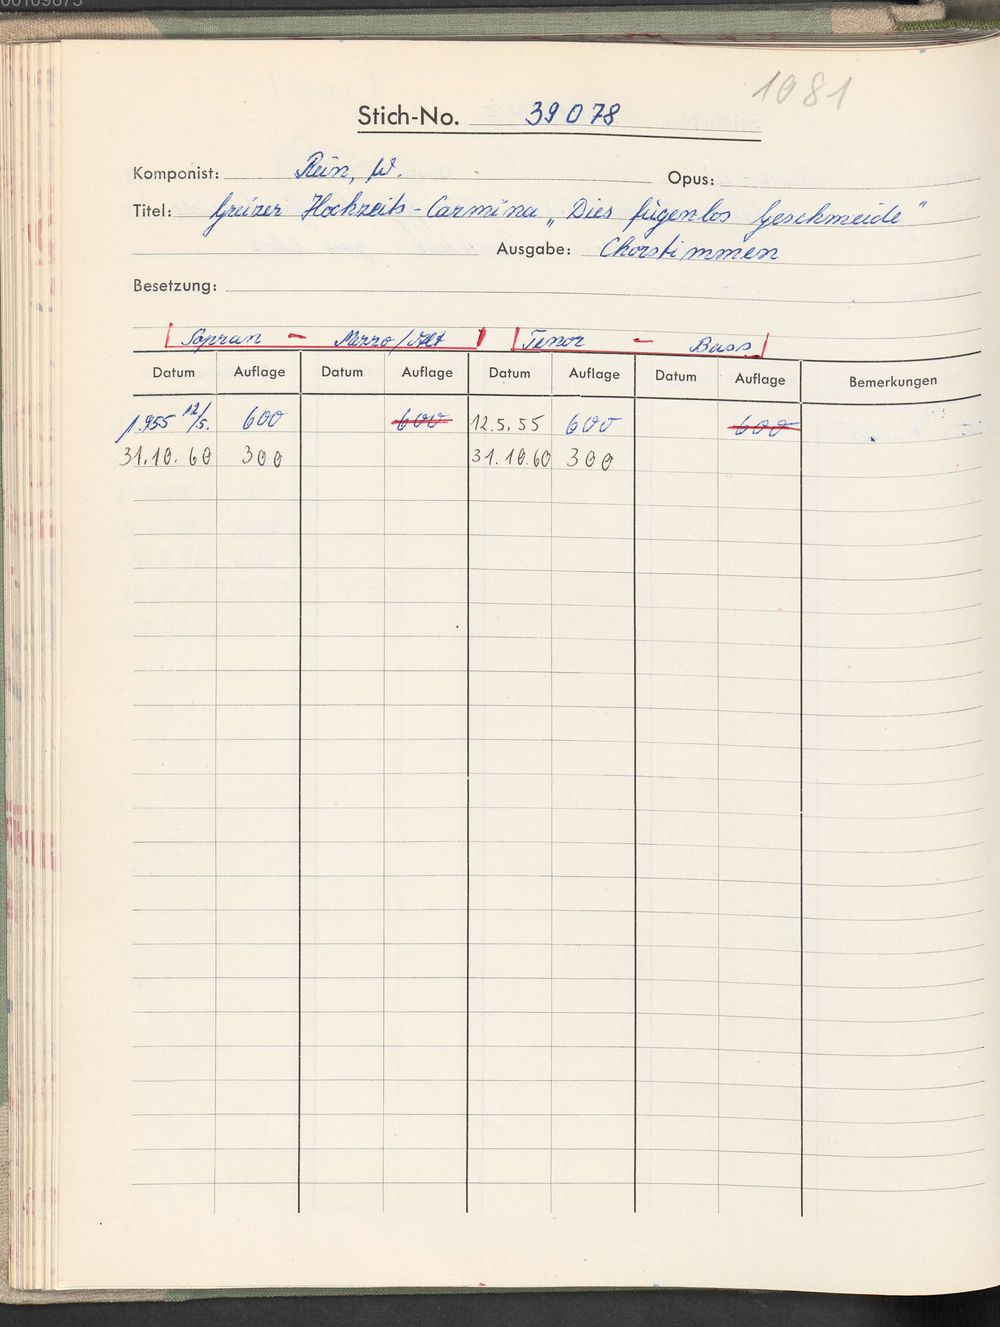 1081
Stich-No. 39078
Komponist: Rein, W. Opus:
Titel: Greizer Hochzeits-Carmina „Dies fugenlos Geschmeide"
Ausgabe: Chorstimmen
Besetzung:
Sopran - Mezzo/Alt Tenor - Bass
Datum Auflage Datum Auflage Datum Auflage Datum Auflage Bemerkungen
1955 12/5. 600 600 12.5.55 600 600
31.10.60 300 31.10.60 300